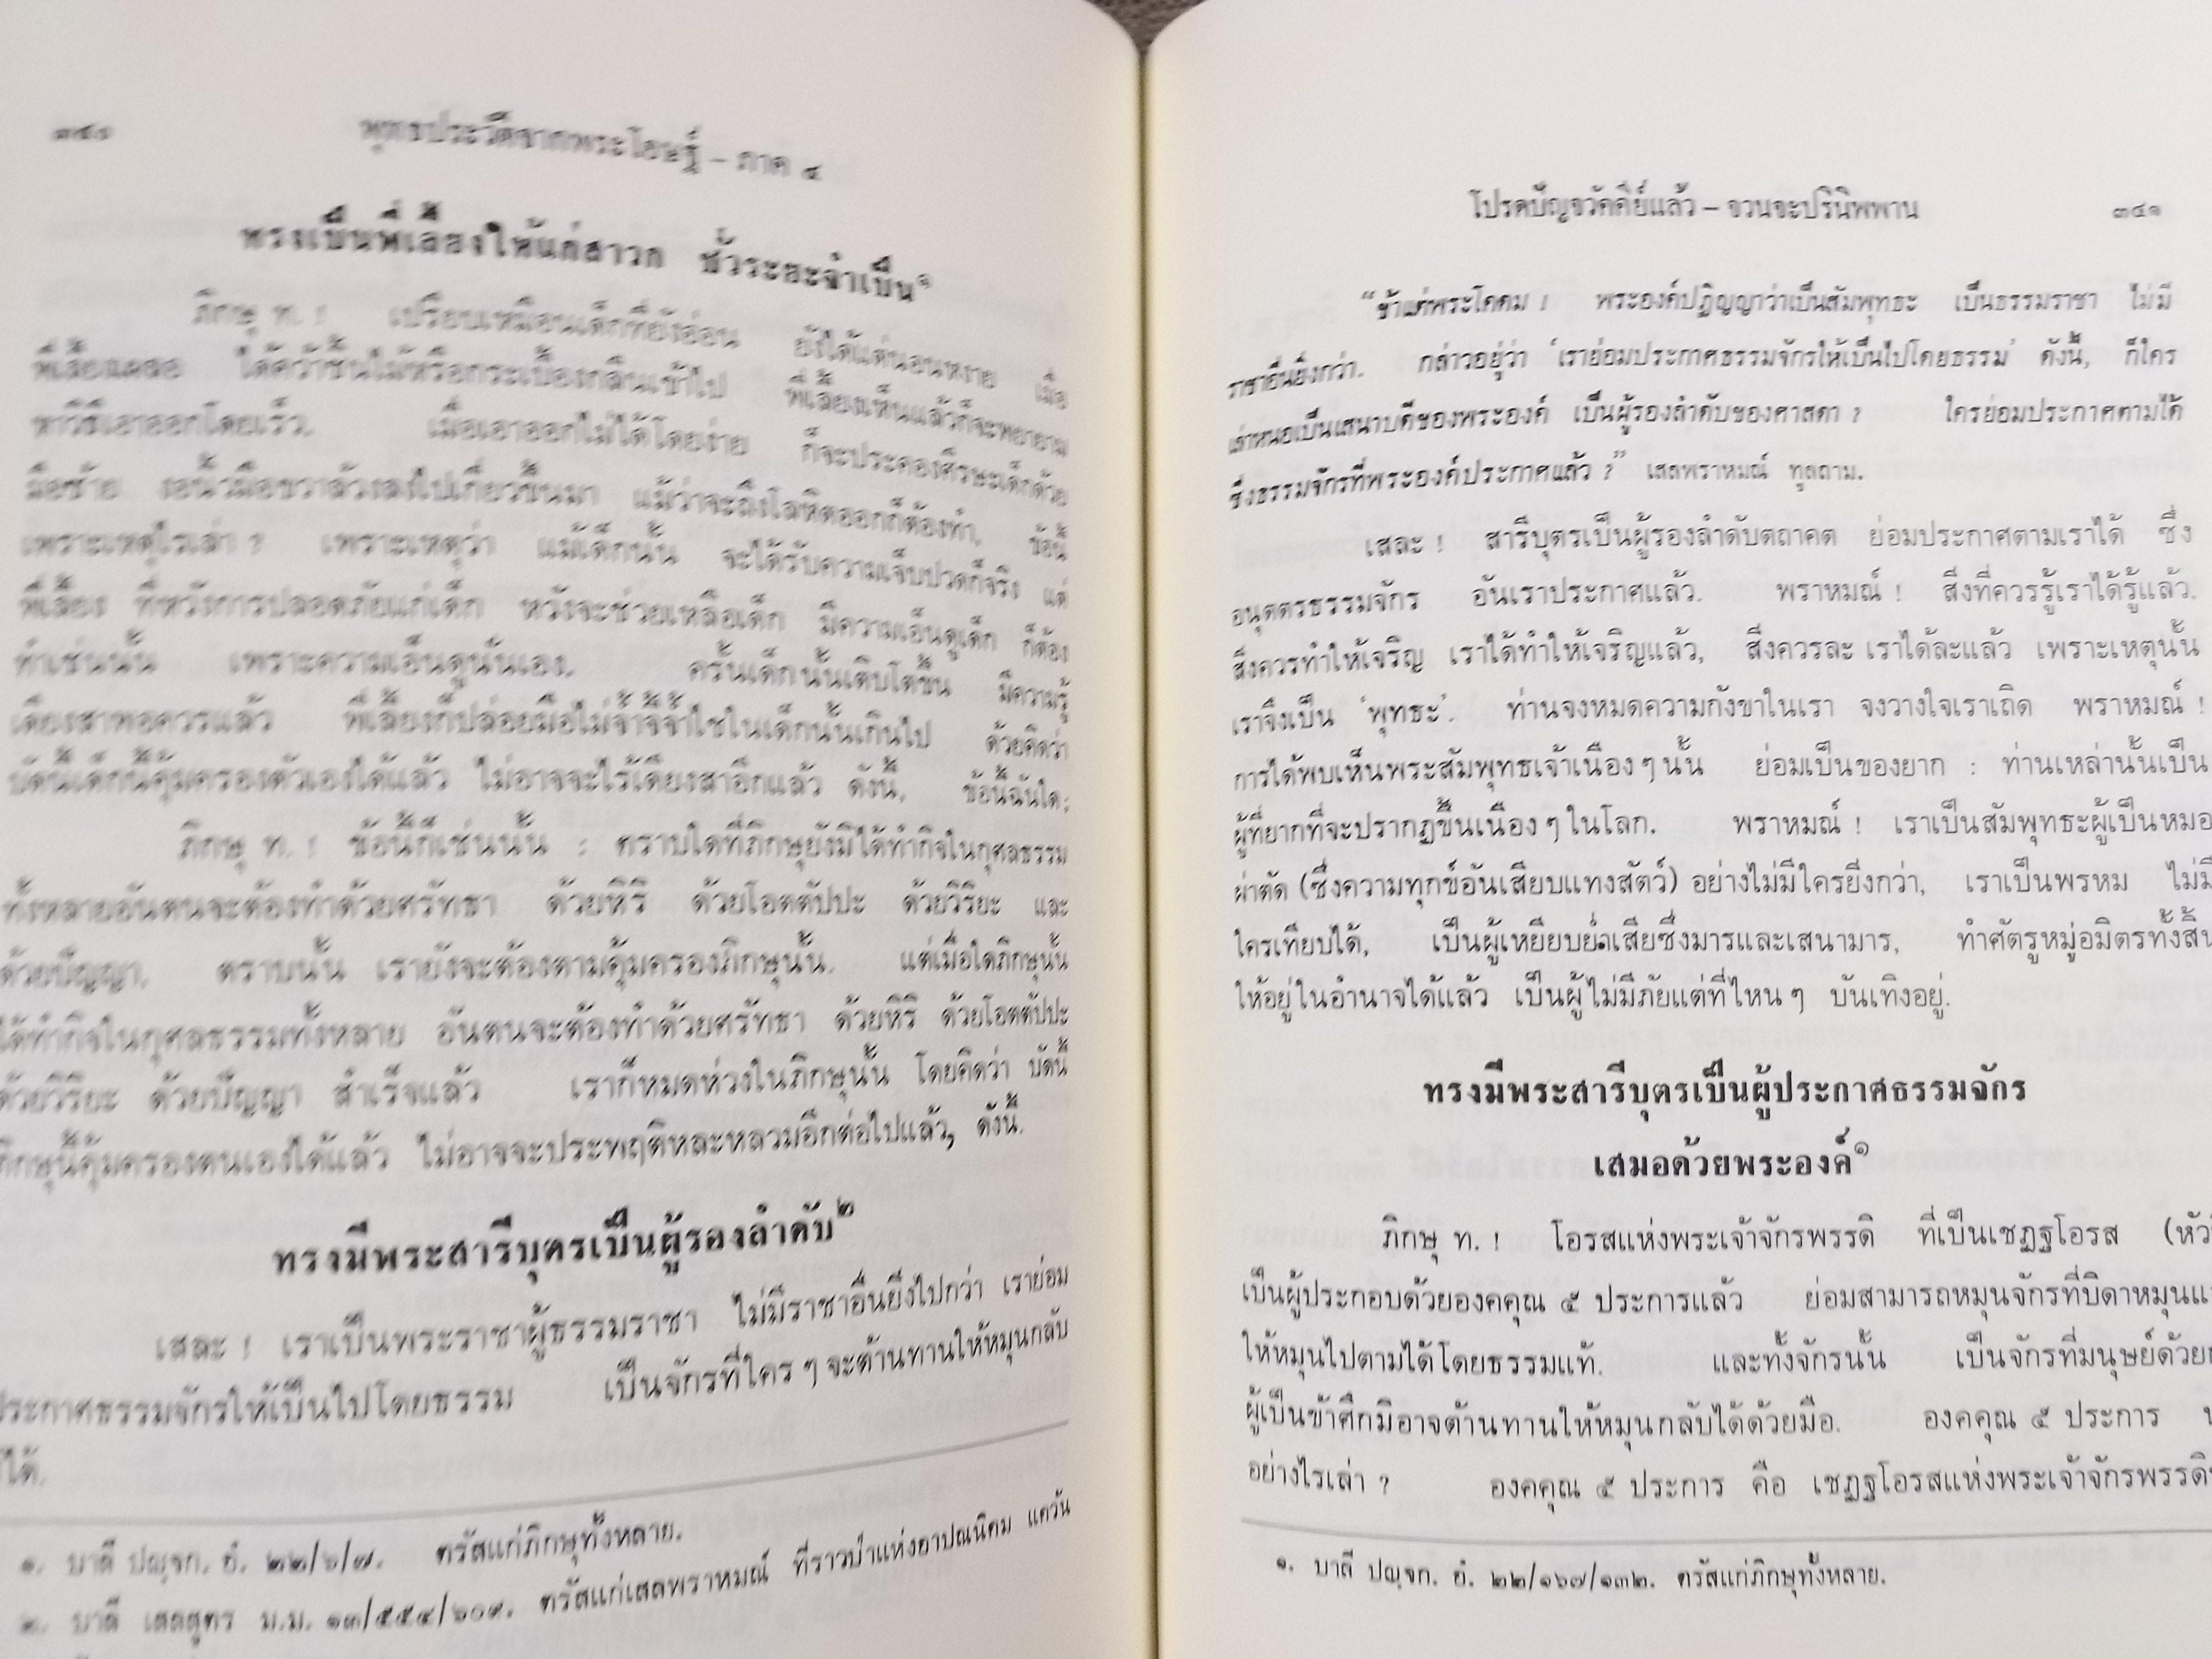 พุทธประวัติจากพระโอษฐ์ – ภาค ๔
ทรงเป็นพี่เลี้ยงให้แก่สาวก ชั่วระยะจำเป็น๑
ภิกษุ ท. ! เปรียบเหมือนเด็กที่ยังอ่อน ยังได้แต่นอนหงาย เมื่อ
พี่เลี้ยงเผลอ ได้คว้าชิ้นไม้หรือกระเบื้องกลืนเข้าไป พี่เลี้ยงเห็นแล้วก็จะพยายาม
หาวิธีเอาออกโดยเร็ว. เมื่อเอาออกไม่ได้โดยง่าย ก็จะประคองศีรษะเด็กด้วย
มือซ้าย งอนิ้วมือขวาล้วงลงไปเกี่ยวขึ้นมา แม้ว่าจะถึงโลหิตออกก็ต้องทำ. ข้อนี้
เพราะเหตุไรเล่า ? เพราะเหตุว่า แม้เด็กนั้น จะได้รับความเจ็บปวดก็จริง แต่
พี่เลี้ยง ที่หวังการปลอดภัยแก่เด็ก หวังจะช่วยเหลือเด็ก มีความเอ็นดูเด็ก ก็ต้อง
ทำเช่นนั้น เพราะความเอ็นดูนั่นเอง. ครั้นเด็กนั้นเติบโตขึ้น มีความรู้
เดียงสาพอควรแล้ว พี่เลี้ยงก็ปล่อยมือไม่จ้ำจี้จ้ำไชในเด็กนั้นเกินไป ด้วยคิดว่า
บัดนี้เด็กนี้คุ้มครองตัวเองได้แล้ว ไม่อาจจะไร้เดียงสาอีกแล้ว ดังนี้. ข้อนี้ฉันใด;
ภิกษุ ท. ! ข้อนี้ก็เช่นนั้น : ตราบใดที่ภิกษุยังมิได้ทำกิจในกุศลธรรม
ทั้งหลายอันตนจะต้องทำด้วยศรัทธา ด้วยหิริ ด้วยโอตตัปปะ ด้วยวิริยะ และ
ด้วยปัญญา, ตราบนั้น เรายังจะต้องตามคุ้มครองภิกษุนั้น. แต่เมื่อใดภิกษุนั้น
ได้ทำกิจในกุศลธรรมทั้งหลาย อันตนจะต้องทำด้วยศรัทธา ด้วยหิริ ด้วยโอตตัปปะ
ด้วยวิริยะ ด้วยปัญญา สำเร็จแล้ว เราก็หมดห่วงในภิกษุนั้น โดยคิดว่า บัดนี้
ภิกษุนี้คุ้มครองตนเองได้แล้ว ไม่อาจจะประพฤติหละหลวมอีกต่อไปแล้ว, ดังนี้.
ทรงมีพระสารีบุตรเป็นผู้รองลำดับ๒
เสละ ! เราเป็นพระราชาผู้ธรรมราชา ไม่มีราชาอื่นยิ่งไปกว่า เราย่อม
ประกาศธรรมจักรให้เป็นไปโดยธรรม เป็นจักรที่ใคร ๆ จะต้านทานให้หมุนกลับ
ได้.
๑. บาลี ปญฺจก. อํ. ๒๒/๖/๗. ตรัสแก่ภิกษุทั้งหลาย.
๒. บาลี เสลสูตร ม.ม. ๑๓/๕๕๔/๖๐๙. ตรัสแก่เสลพราหมณ์ ที่ราวป่าแห่งอาปณนิคม แคว้น
โปรดปัญจวัคคีย์แล้ว – จวนจะปรินิพพาน ๓๔๑
“ข้าแต่พระโคดม ! พระองค์ปฏิญญาว่าเป็นสัมพุทธะ เป็นธรรมราชา ไม่มี
ราชาอื่นยิ่งกว่า. กล่าวอยู่ว่า ‘เราย่อมประกาศธรรมจักรให้เป็นไปโดยธรรม’ ดังนี้, ก็ใคร
เล่าหนอเป็นเสนาบดีของพระองค์ เป็นผู้รองลำดับของศาสดา ? ใครย่อมประกาศตามได้
ซึ่งธรรมจักรที่พระองค์ประกาศแล้ว ?” เสลพราหมณ์ ทูลถาม.
เสละ ! สารีบุตรเป็นผู้รองลำดับตถาคต ย่อมประกาศตามเราได้ ซึ่ง
อนุตตรธรรมจักร อันเราประกาศแล้ว. พราหมณ์ ! สิ่งที่ควรรู้เราได้รู้แล้ว,
สิ่งควรทำให้เจริญ เราได้ทำให้เจริญแล้ว, สิ่งควรละ เราได้ละแล้ว เพราะเหตุนั้น
เราจึงเป็น ‘พุทธะ’. ท่านจงหมดความกังขาในเรา จงวางใจเราเถิด พราหมณ์ !
การได้พบเห็นพระสัมพุทธเจ้าเนือง ๆ นั้น ย่อมเป็นของยาก : ท่านเหล่านั้นเป็น
ผู้ที่ยากที่จะปรากฏขึ้นเนือง ๆ ในโลก. พราหมณ์ ! เราเป็นสัมพุทธะผู้เป็นหมอ
ผ่าตัด (ซึ่งความทุกข์อันเสียบแทงสัตว์) อย่างไม่มีใครยิ่งกว่า, เราเป็นพรหม ไม่มี
ใครเทียบได้, เป็นผู้เหยียบย่ำเสียซึ่งมารและเสนามาร, ทำศัตรูหมู่อมิตรทั้งสิ้น
ให้อยู่ในอำนาจได้แล้ว เป็นผู้ไม่มีภัยแต่ที่ไหน ๆ บันเทิงอยู่.
ทรงมีพระสารีบุตรเป็นผู้ประกาศธรรมจักร
เสมอด้วยพระองค์๑
ภิกษุ ท. ! โอรสแห่งพระเจ้าจักรพรรดิ ที่เป็นเชฏฐโอรส
เป็นผู้ประกอบด้วยองคคุณ ๕ ประการแล้ว ย่อมสามารถหมุนจักรที่บิดาหมุน
ให้หมุนไปตามได้โดยธรรมแท้. และทั้งจักรนั้น เป็นจักรที่มนุษย์ด้วย
ผู้เป็นข้าศึกมิอาจต้านทานให้หมุนกลับได้ด้วยมือ. องคคุณ ๕ ประการ
อย่างไรเล่า ? องคคุณ ๕ ประการ คือ เชฏฐโอรสแห่งพระเจ้าจักรพรรดิ
๑. บาลี ปญฺจก. อํ. ๒๒/๑๖๗/๑๓๒. ตรัสแก่ภิกษุทั้งหลาย.